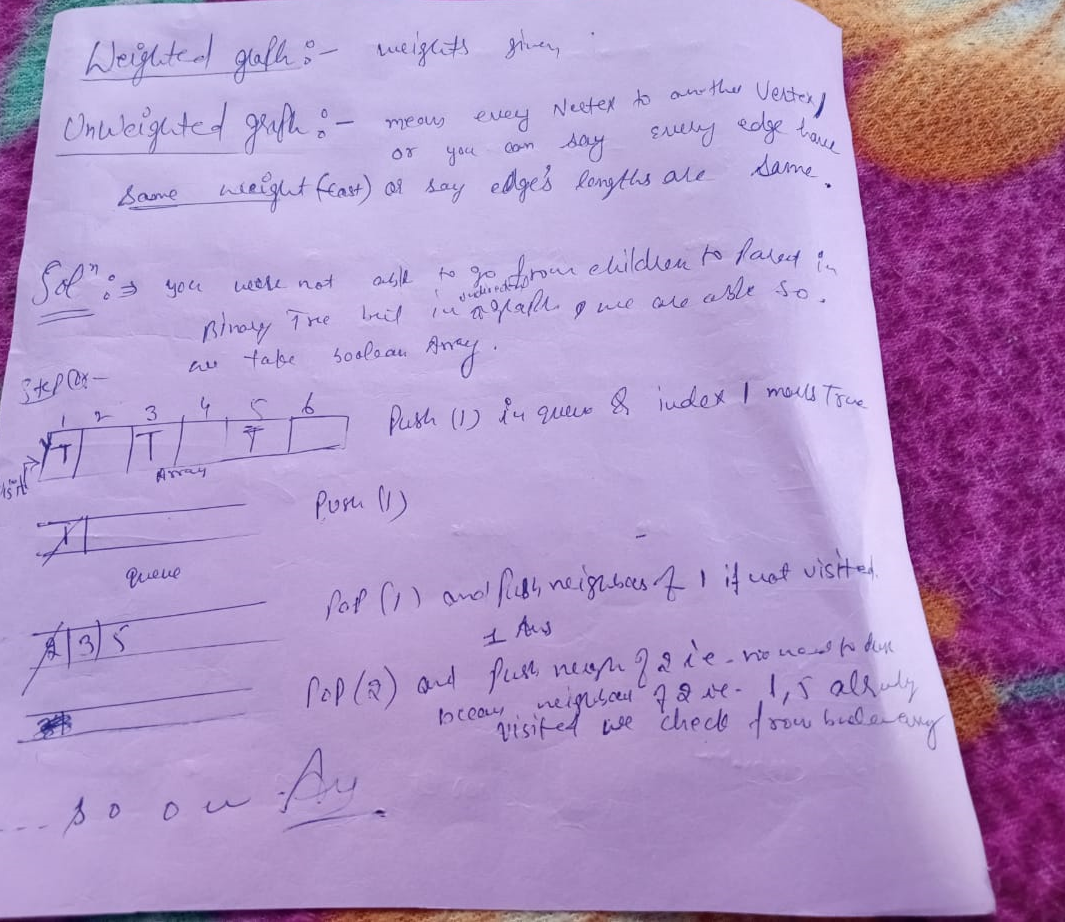 Weighted graph :- weights given
Unweighted graph :- means every Vertex to another Vertex,
or you can say every edge have
same weight (cost) or say edge's lengths are same.
Solⁿ :→ you were not able to go from children to Parent in
Binary Tree but in a undirected graph we are able so.
we take boolean Array.
Step Or-
1 2 3 4 5 6
T T T
visit
Array
Push (1) in queue & index 1 marks True
Push (1)
1
Queue
Pop (1) and push neighbors of 1 if not visited.
2 3 5
1 Ans
Pop (2) and Push neigh of 2 i.e. no need to
neighbour of 2 i.e. 1, 5 already
visited we check from
... so on Ans.